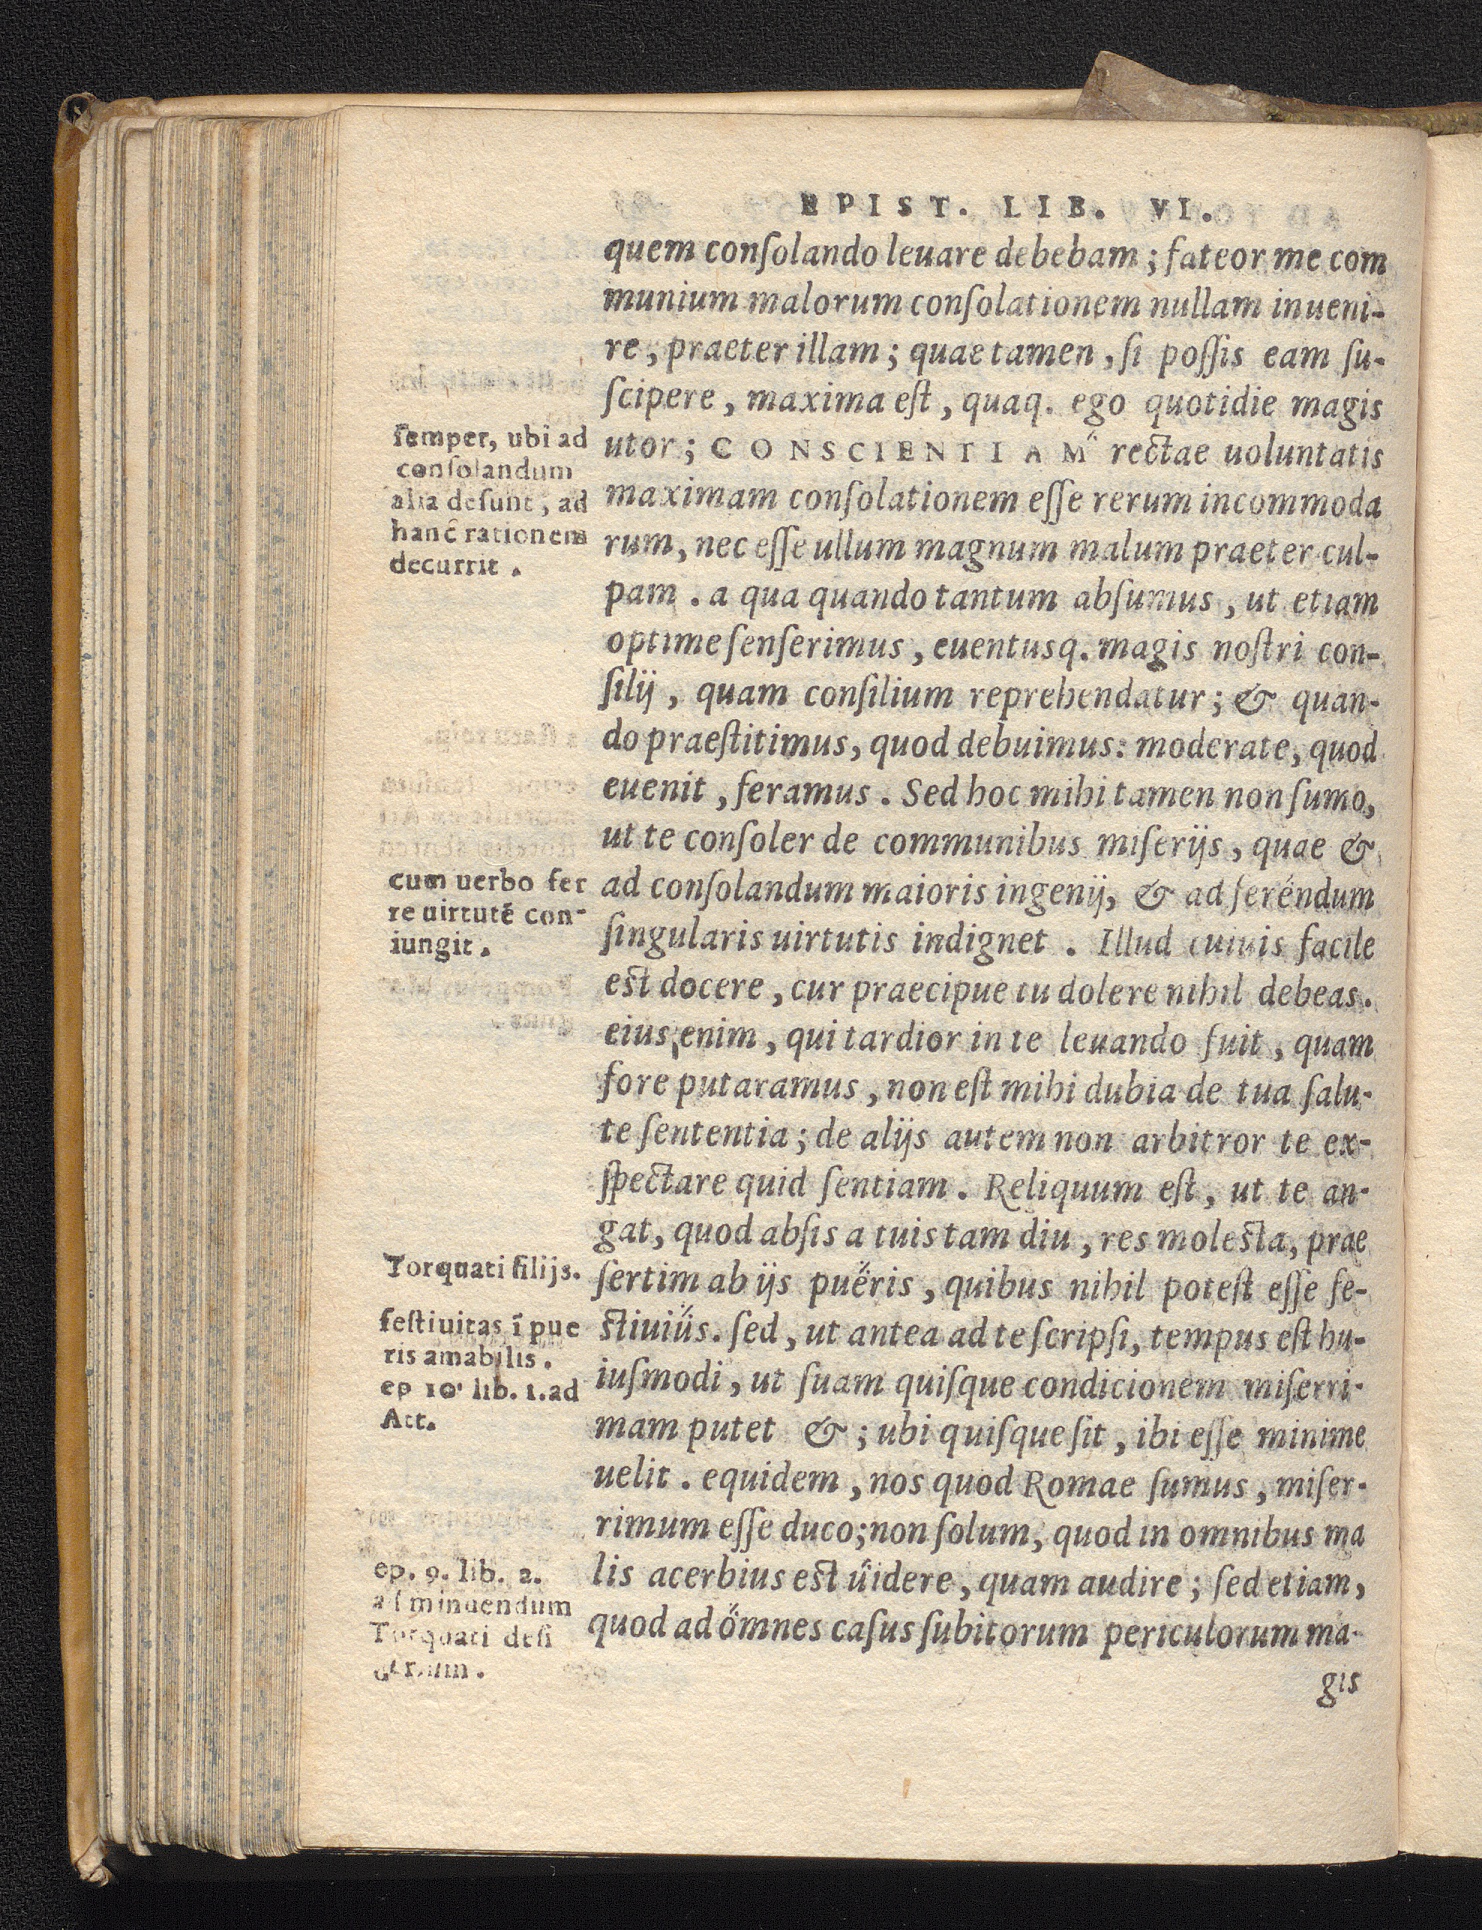 EPIST. LIB. VI.
quem conſolando leuare debebam; fateor me com
munium malorum conſolationem nullam inueni-
re, praeter illam; quae tamen, ſi poſſis eam ſu-
ſcipere, maxima eſt, quaq. ego quotidie magis
utor; CONSCIENTIAM" rectae uoluntatis
maximam conſolationem eſſe rerum incommoda
rum, nec eſſe ullum magnum malum praeter cul-
pam. a qua quando tantum abſumus, ut etiam
optime ſenſerimus, euentusq. magis noſtri con-
ſilij, quam conſilium reprehendatur; & quan-
do praeſtitimus, quod debuimus: moderate, quod
euenit, feramus. Sed hoc mihi tamen non ſumo,
ut te conſoler de communibus miſerijs, quae &
ad conſolandum maioris ingenij, & ad feréndum
ſingularis uirtutis indignet. Illud cuiuis facile
est docere, cur praecipue tu dolere nihil debeas.
eius enim, qui tardior in te leuando fuit, quam
fore putaramus, non eſt mihi dubia de tua ſalu-
te ſententia; de alijs autem non arbitror te ex-
ſpectare quid ſentiam. Reliquum eſt, ut te an-
gat, quod abſis a tuis tam diu, res molesta, prae
ſertim ab ijs pue̋ris, quibus nihil poteſt eſſe fe-
stiuiűs. ſed, ut antea ad te ſcripſi, tempus eſt hu-
iuſmodi, ut ſuam quiſque condicionem miſerri-
mam putet &; ubi quiſque ſit, ibi eſſe minime
uelit. equidem, nos quod Romae ſumus, miſer-
rimum eſſe duco; non ſolum, quod in omnibus ma
lis acerbius est űidere, quam audire; ſed etiam,
quod ad őmnes caſus ſubitorum periculorum ma-
gis
ſemper, ubi ad
conſolandum
alia deſunt, ad
hanc̃ rationem
decurrit.
cum uerbo fer
re uirtutẽ con-
iungit.
Torquati filijs.
feſtiuitas ĩ pue
ris amabilis.
ep 10' lib. 1. ad
Att.
ep. 9. lib. 2.
ad minuendum
Torquati deſi